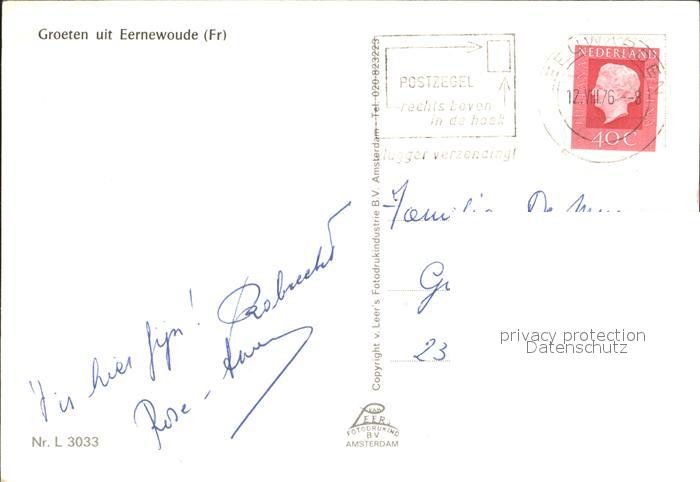 Groeten uit Eernewoude (Fr)
POSTZEGEL
rechts boven
in de hoek
vlugger verzending!
NEDERLAND
12.VIII.76 -8
40 C
Copyright v. Leer's Fotodrukindustrie B.V. Amsterdam - Tel. 020-823223
Familie De
Gr
23
't is hier fijn!
Rose-
privacy protection
Datenschutz
VAN
LEER
FOTODRUKIND
B.V.
AMSTERDAM
Nr. L 3033